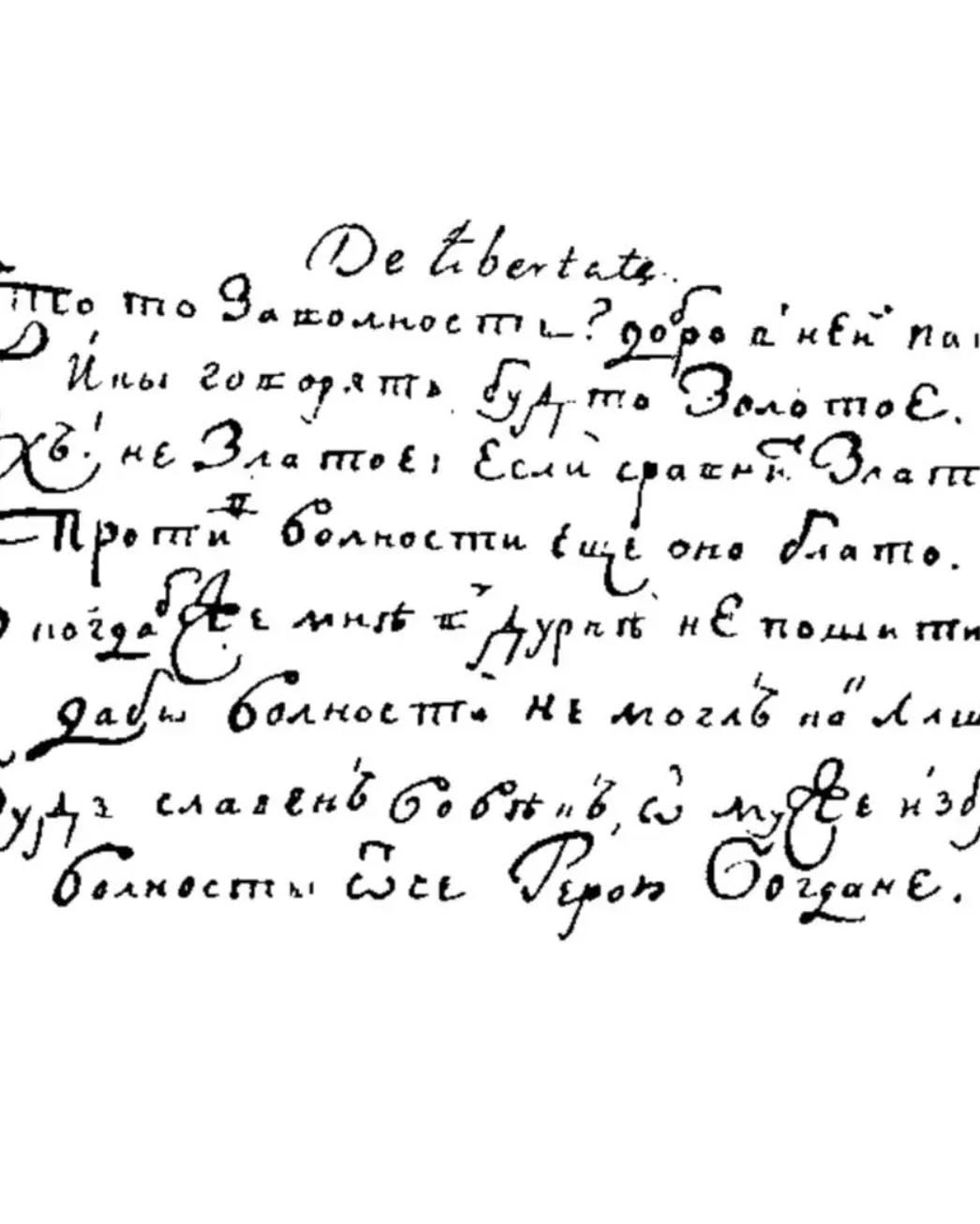 De libertate.
Что то за волность? добро в ней
Ины говорять, будто золотое.
Ахъ! не златое: если сравнить злато
Против волности еще оно блато.
О когда бже мнѣ в дурнѣ не пошити
дабы волности не моглъ як лиши
Будь славенъ вовѣкъ, ѡ муже избр
волносты ѿче Герою Богдане.